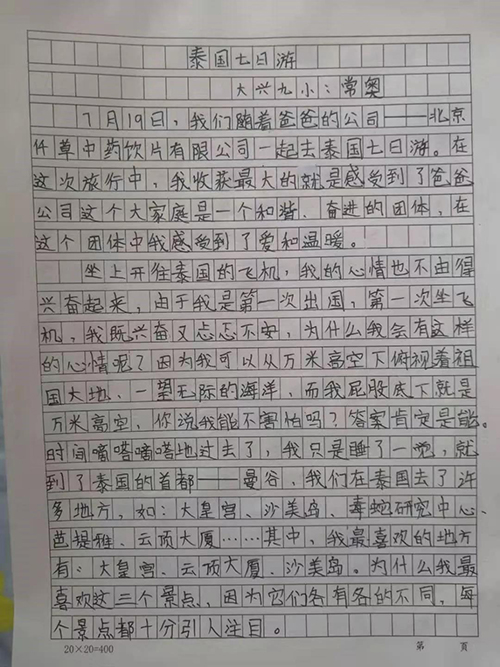 泰国七日游
大兴九小：常奥
7月19日，我们随着爸爸的公司——北京
仟草中药饮片有限公司一起去泰国七日游。在
这次旅行中，我收获最大的就是感受到了爸爸
公司这个大家庭是一个和谐、奋进的团体，在
这个团体中我感受到了爱和温暖。
坐上开往泰国的飞机，我的心情也不由得
兴奋起来，由于我是第一次出国，第一次坐飞
机，我既兴奋又忐忑不安，为什么我会有这样
的心情呢？因为我可以从万米高空下俯视着祖
国大地、一望无际的海洋，而我屁股底下就是
万米高空，你说我能不害怕吗？答案肯定是能。
时间嘀嗒嘀嗒地过去了，我只是睡了一觉，就
到了泰国的首都——曼谷，我们在泰国去了许
多地方，如：大皇宫、沙美岛、毒蛇研究中心、
芭提雅、云顶大厦……其中，我最喜欢的地方
有：大皇宫、云顶大厦、沙美岛。为什么我最
喜欢这三个景点，因为它们各有各的不同，每
个景点都十分引人注目。
20×20=400 第 页